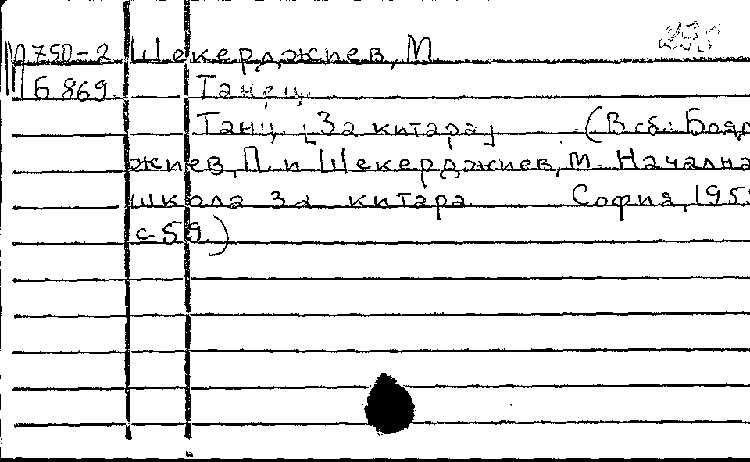 М750-2 Шекерджиев, М.
Б 869. Танец.
Танц [За китара] (В сб.: Бояд
жиев, П. и Шекерджиев, М. Начална
школа за китара София, 195
с. 59.)